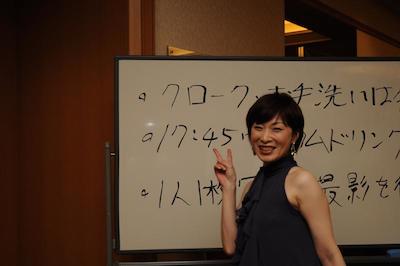 。クローク・お手洗いは
。17:45 ムドリンク
。1人1枚 撮影を